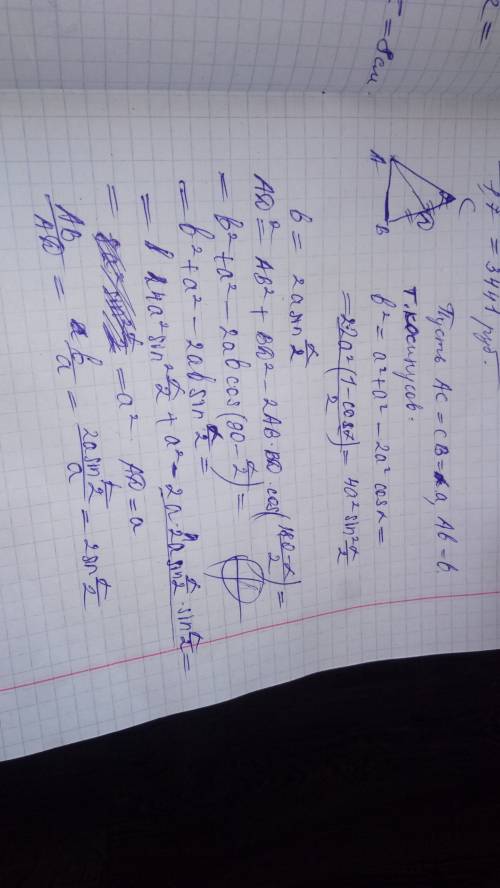 = 8 см
= 3441 руб.
C
D
A
B
Пусть AC = CB = a, AB = b.
т. косинусов:
b² = a² + a² − 2a² cos α =
= 2·2a² (1 − cos α)/2 = 4a² sin² α/2
b = 2a sin α/2
AD² = AB² + BD² − 2AB·BD·cos((180 − α)/2) =
= b² + a² − 2ab cos(90 − α/2) =
= b² + a² − 2ab sin α/2 =
= 4a² sin² α/2 + a² − 2a·2a sin α/2 · sin α/2 =
= = a². AD = a
AB/AD = b/a = (2a sin α/2)/a = 2 sin α/2